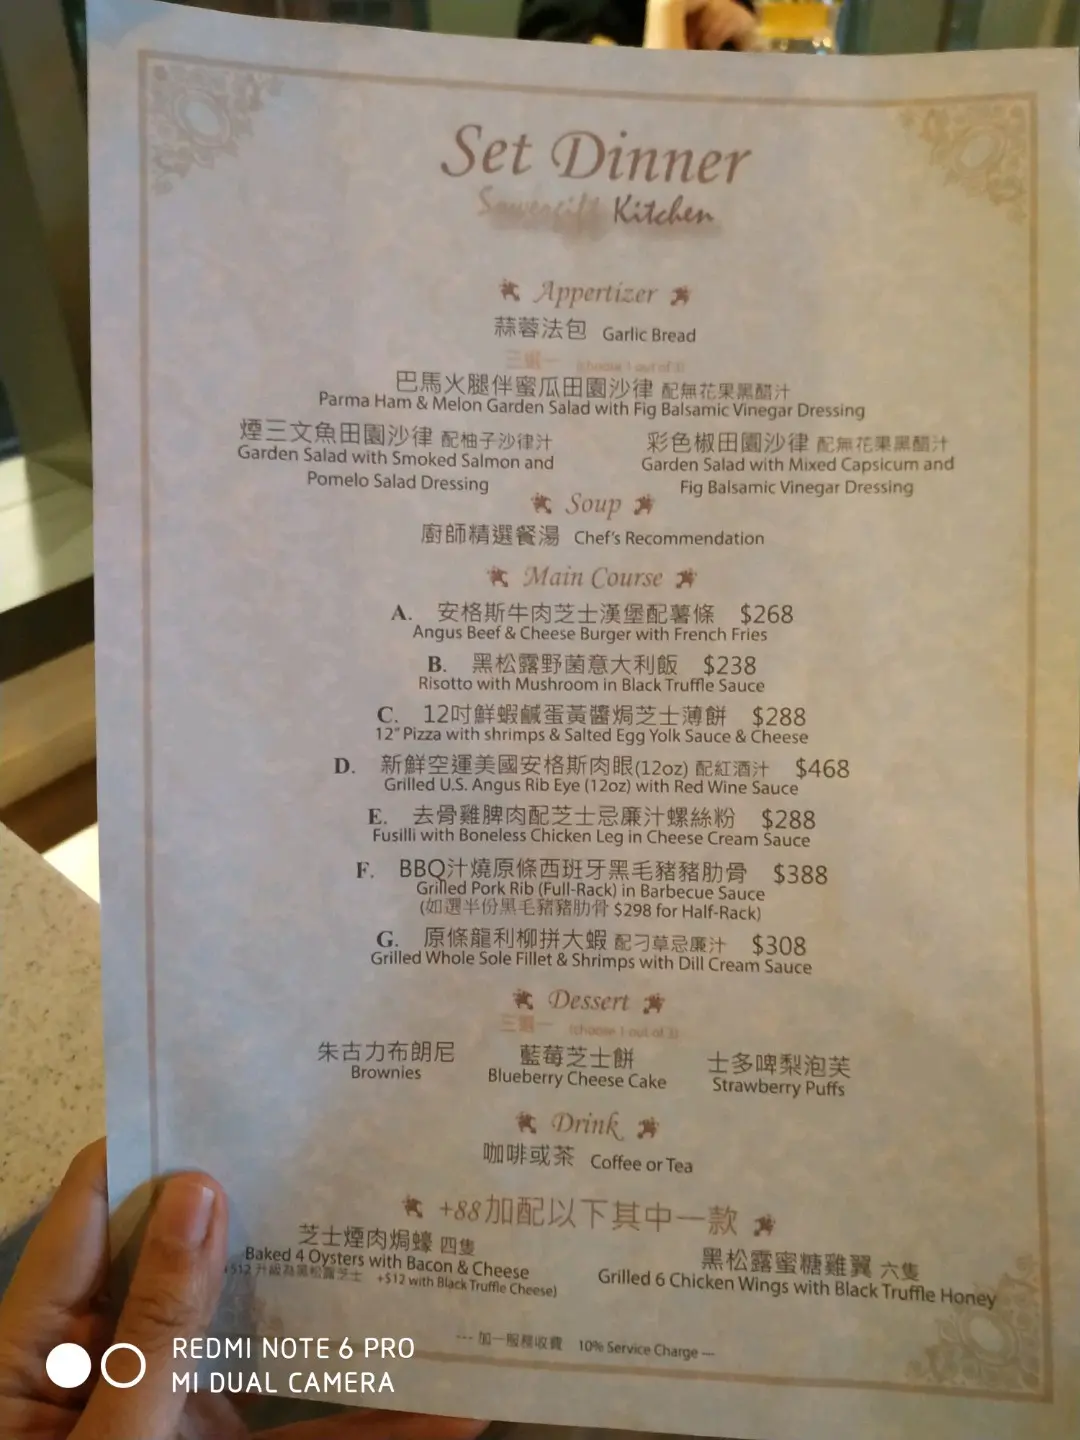 Set Dinner
Kitchen
Appertizer
蒜蓉法包 Garlic Bread
三選一 (choose 1 out of 3)
巴馬火腿伴蜜瓜田園沙律 配無花果黑醋汁
Parma Ham & Melon Garden Salad with Fig Balsamic Vinegar Dressing
煙三文魚田園沙律 配柚子沙律汁
Garden Salad with Smoked Salmon and
Pomelo Salad Dressing
彩色椒田園沙律 配無花果黑醋汁
Garden Salad with Mixed Capsicum and
Fig Balsamic Vinegar Dressing
Soup
廚師精選餐湯 Chef's Recommendation
Main Course
A. 安格斯牛肉芝士漢堡配薯條 $268
Angus Beef & Cheese Burger with French Fries
B. 黑松露野菌意大利飯 $238
Risotto with Mushroom in Black Truffle Sauce
C. 12吋鮮蝦鹹蛋黃醬焗芝士薄餅 $288
12" Pizza with shrimps & Salted Egg Yolk Sauce & Cheese
D. 新鮮空運美國安格斯肉眼(12oz) 配紅酒汁 $468
Grilled U.S. Angus Rib Eye (12oz) with Red Wine Sauce
E. 去骨雞脾肉配芝士忌廉汁螺絲粉 $288
Fusilli with Boneless Chicken Leg in Cheese Cream Sauce
F. BBQ汁燒原條西班牙黑毛豬豬肋骨 $388
Grilled Pork Rib (Full-Rack) in Barbecue Sauce
(如選半份黑毛豬豬肋骨 $298 for Half-Rack)
G. 原條龍利柳拼大蝦 配刁草忌廉汁 $308
Grilled Whole Sole Fillet & Shrimps with Dill Cream Sauce
Dessert
三選一 (choose 1 out of 3)
朱古力布朗尼
Brownies
藍莓芝士餅
Blueberry Cheese Cake
士多啤梨泡芙
Strawberry Puffs
Drink
咖啡或茶 Coffee or Tea
+88加配以下其中一款
芝士煙肉焗蠔 四隻
Baked 4 Oysters with Bacon & Cheese
+$12 升級為黑松露芝士 +$12 with Black Truffle Cheese)
黑松露蜜糖雞翼 六隻
Grilled 6 Chicken Wings with Black Truffle Honey
--- 加一服務收費 10% Service Charge ---
REDMI NOTE 6 PRO
MI DUAL CAMERA